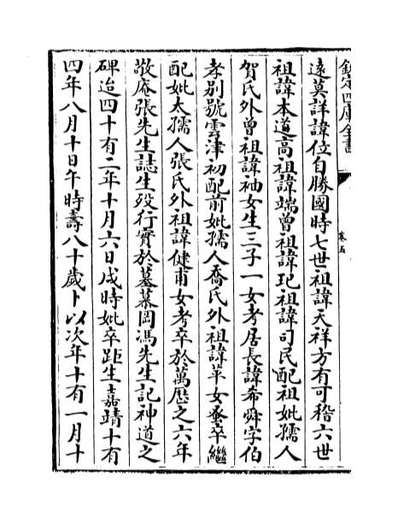 欽定四庫全書
卷五
遠莫詳諱位自勝國時七世祖諱天祥方有可稽六世
祖諱本道高祖諱端曾祖諱玘祖諱司民配祖妣孺人
賀氏外曾祖諱袖女生三子一女考居長諱希舜字伯
孝别號雲津初配前妣孺人喬氏外祖諱革女蚤卒繼
配妣太孺人張氏外祖諱健甫女考卒於萬厯之六年
敬庵張先生誌生殁行實於墓慕岡馮先生記神道之
碑迨四十有二年十月六日戌時妣卒距生嘉靖十有
四年八月十日午時壽八十歲卜以次年十有一月十